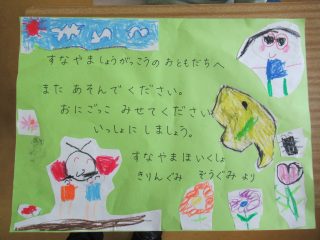 すなやましょうがっこうの おともだちへ
また あそんでください。
おにごっこ みせてください
いっしょに しましょう。
すなやまほいくしょ
きりんぐみ ぞうぐみ より